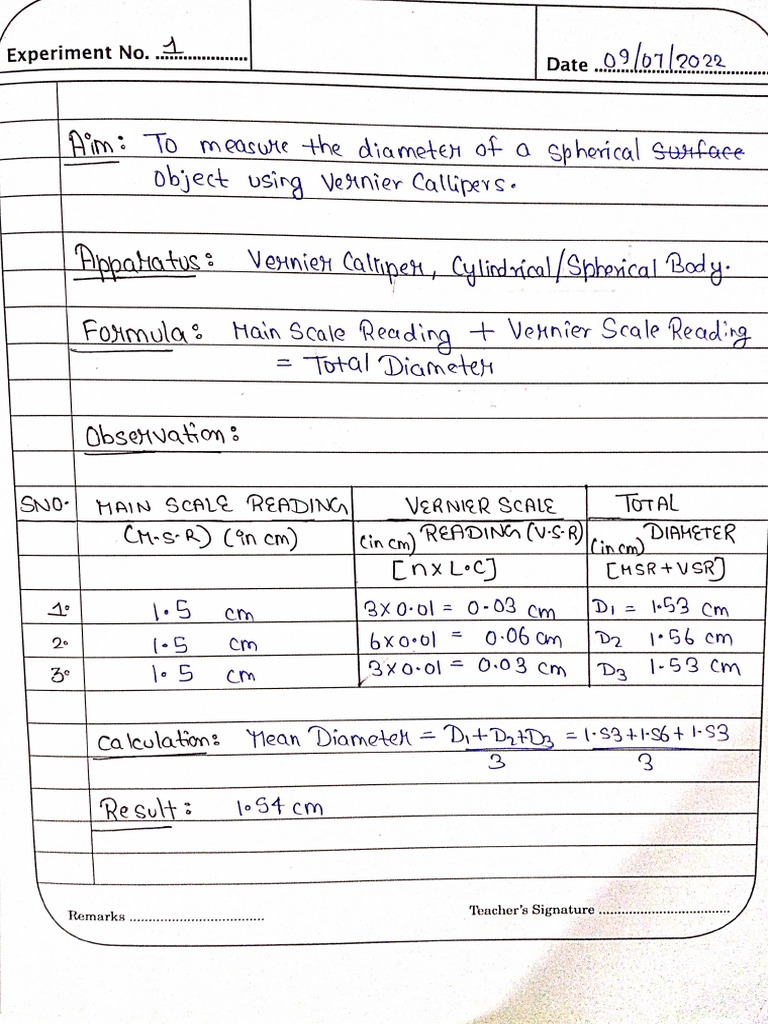 Experiment No. 1
Date 09/07/2022
Aim: To measure the diameter of a spherical surface
object using Vernier Callipers.
Apparatus: Vernier Calliper, Cylindrical/Spherical Body.
Formula: Main Scale Reading + Vernier Scale Reading
= Total Diameter
Observation:
SNO. MAIN SCALE READING VERNIER SCALE TOTAL
(M.S.R) (in cm) (in cm) READING (V.S.R) (in cm) DIAMETER
[n x L.C] [MSR + VSR]
1. 1.5 cm 3 x 0.01 = 0.03 cm D1 = 1.53 cm
2. 1.5 cm 6 x 0.01 = 0.06 cm D2 1.56 cm
3. 1.5 cm 3 x 0.01 = 0.03 cm D3 1.53 cm
Calculation: Mean Diameter = D1+D2+D3 = 1.53+1.56+1.53
3 3
Result: 1.54 cm
Remarks
Teacher's Signature